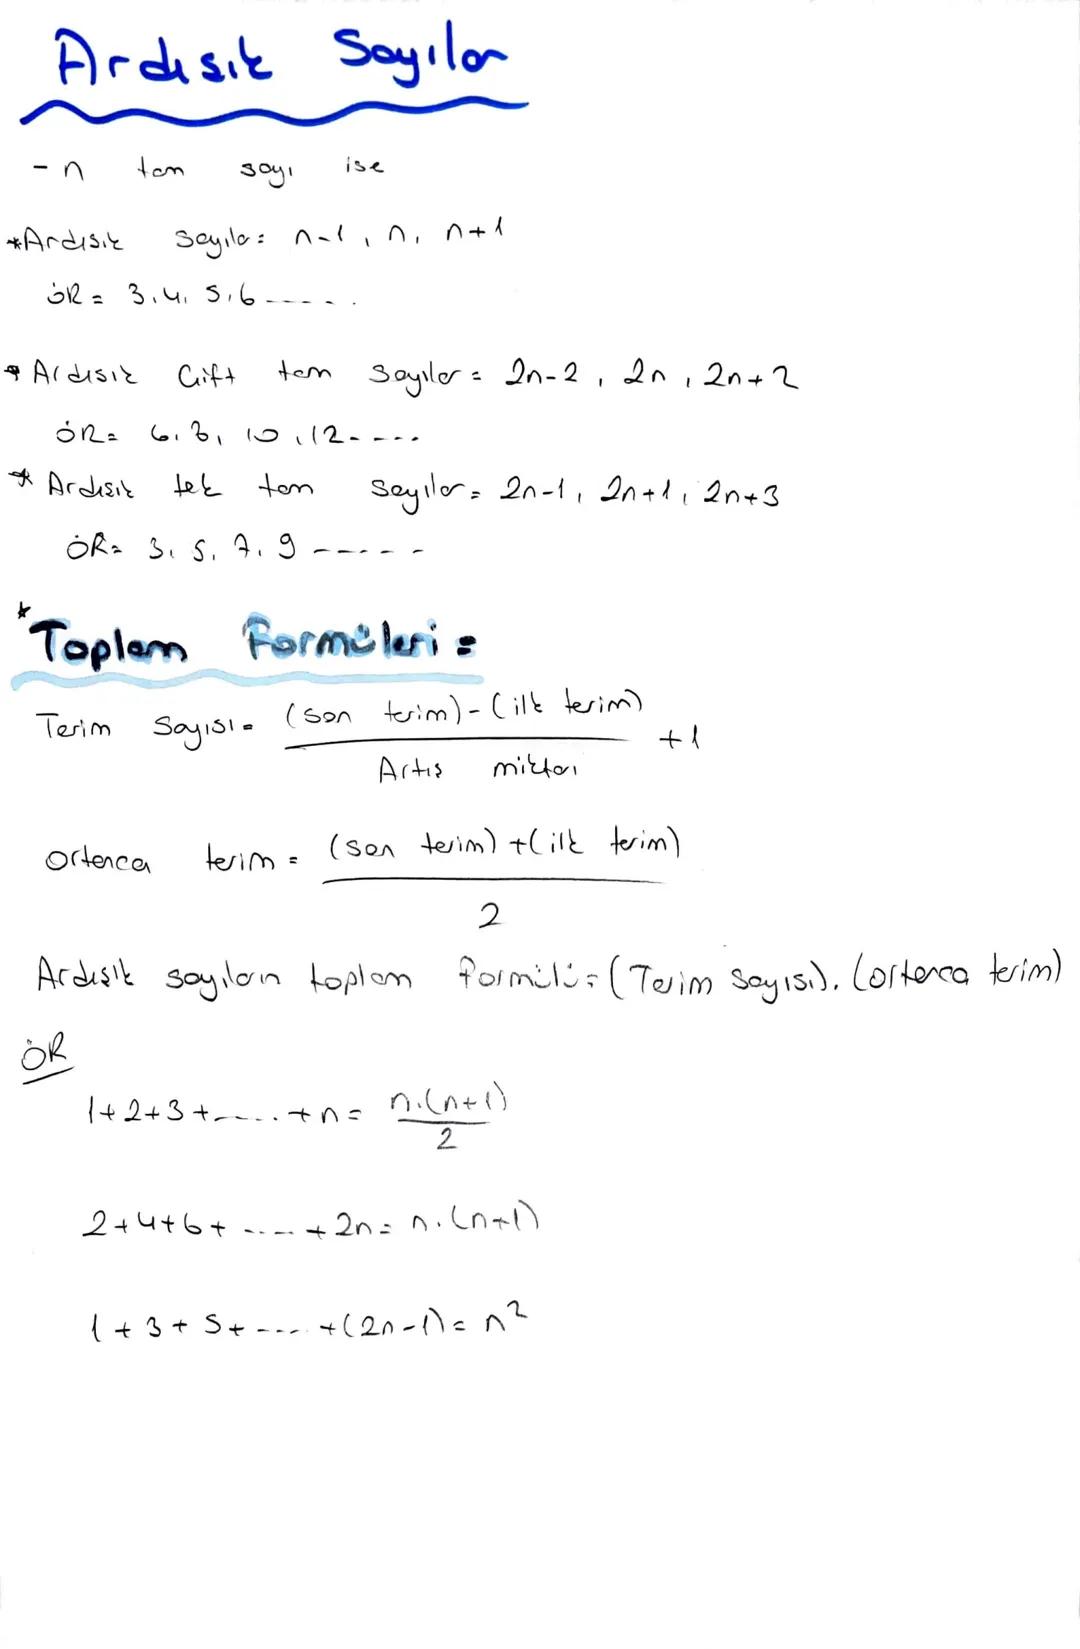 Ardışık Sayılar
- n tam sayı ise
*Ardışık sayılar= n-1, n, n+1
ÖR= 3, 4, 5, 6 -----
* Ardışık Çift tam sayılar= 2n-2, 2n, 2n+2
ÖR= 6, 8, 10, 12 ----
* Ardışık tek tam sayılar= 2n-1, 2n+1, 2n+3
ÖR= 3, 5, 7, 9 -----
*Toplam Formüleri=
Terim Sayısı= (son terim)-(ilk terim) / Artış miktarı +1
Ortanca terim= (son terim)+(ilk terim) / 2
Ardışık sayıların toplam formülü=(Terim sayısı).(ortanca terim)
ÖR
1+2+3+.....+n= n.(n+1) / 2
2+4+6+ ..... +2n= n.(n+1)
1+3+5+ ---- +(2n-1)= n²